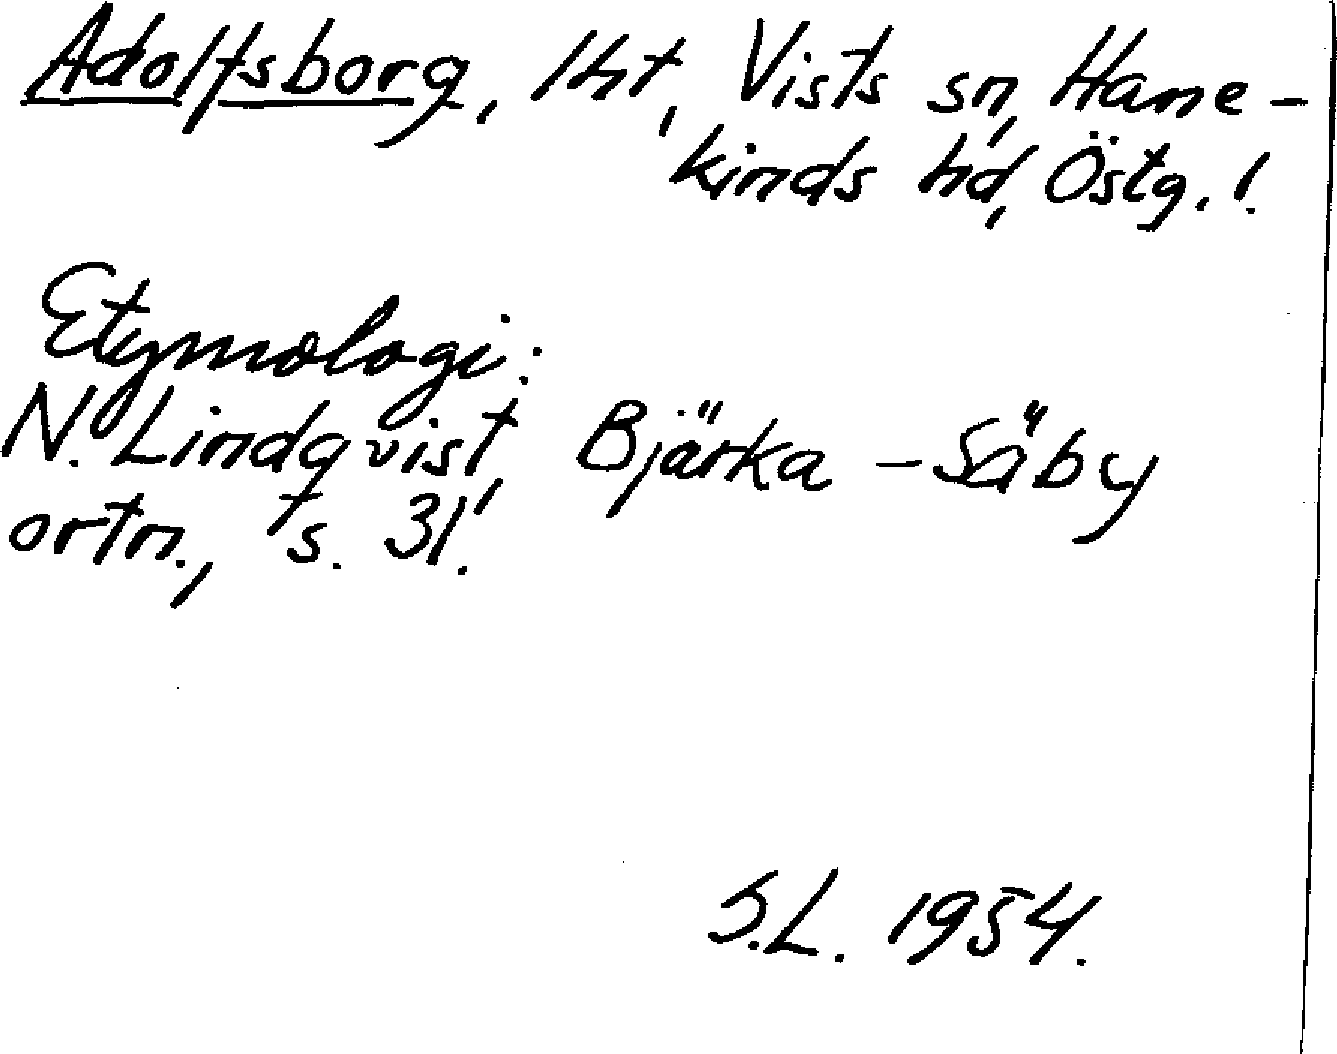 Adolfsborg, lht, Vists sn, Hane-
kinds hd, Östg.!
Etymologi:
N. Lindqvist, Bjärka-Säby
ortn., s. 31.
S.L. 1954.